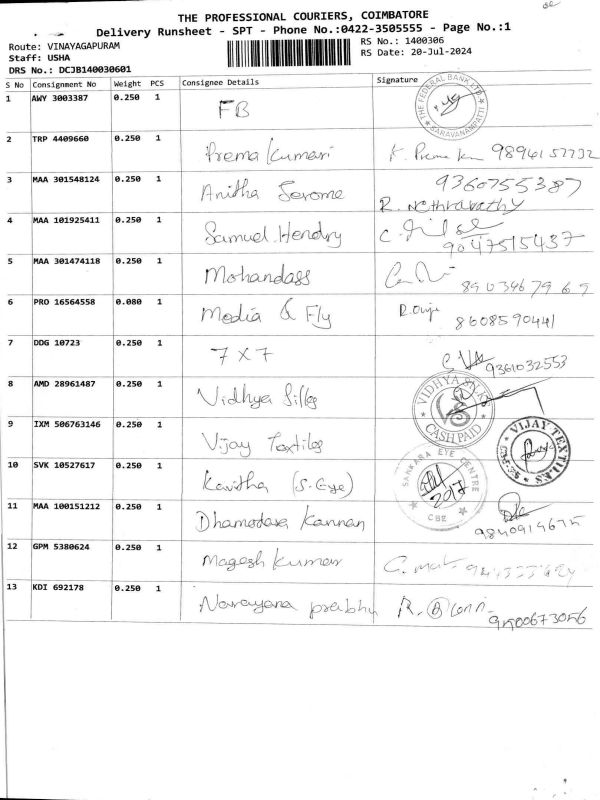 THE PROFESSIONAL COURIERS, COIMBATORE
Delivery Runsheet - SPT - Phone No.:0422-3505555 - Page No.:1
Route: VINAYAGAPURAM RS No.: 1400306
Staff: USHA RS Date: 20-Jul-2024
DRS No.: DCJB140030601
S No Consignment No Weight PCS Consignee Details Signature
1 AWY 3003387 0.250 1 FB THE FEDERAL BANK LTD. SARAVANAMPATTI
2 TRP 4409660 0.250 1 Prema Kumari K. Prema 9894157732
3 MAA 301548124 0.250 1 Anitha Jerome 9360755387
R. Nethravathy
4 MAA 101925411 0.250 1 Samuel Hendry
9047515437
5 MAA 301474118 0.250 1 Mohandass
8903467969
6 PRO 16564558 0.080 1 Media & Fly
8608590441
7 DDG 10723 0.250 1 7 X 7 9361032553
8 AMD 28961487 0.250 1 Vidhya Silks VIDHYA SILKS CASH PAID
9 IXM 506763146 0.250 1 Vijay Textiles VIJAY TEXTILES
10 SVK 10527617 0.250 1 Kavitha (S. Eye) SANKARA EYE CENTRE CBE
11 MAA 100151212 0.250 1 Dhamodara Kannan
12 GPM 5380624 0.250 1 Magesh Kumar
13 KDI 692178 0.250 1 Narayana prabhu R.
9500673056